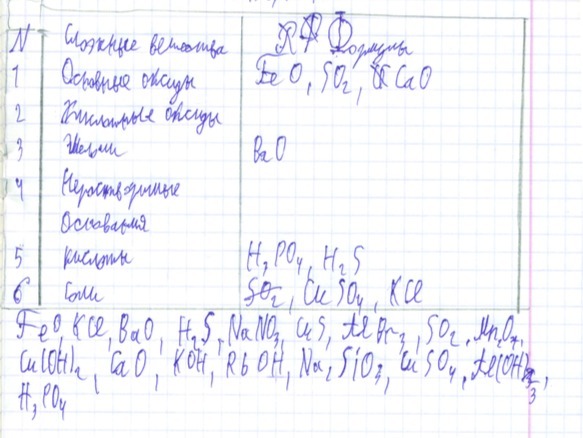 N Сложные вещества Формулы
1 Основные оксиды FeO, SO2, CaO
2 Кислотные оксиды
3 Щелочи BaO
4 Нерастворимые
Основания
5 кислоты H3PO4, H2S
6 Соли SO2, CuSO4, KCl
FeO, KCl, BaO, H2S, NaNO3, CuS, AlBr3, SO2, Mn2O7,
Cu(OH)2, CaO, KOH, RbOH, Na2SiO3, CuSO4, Al(OH)3,
H3PO4